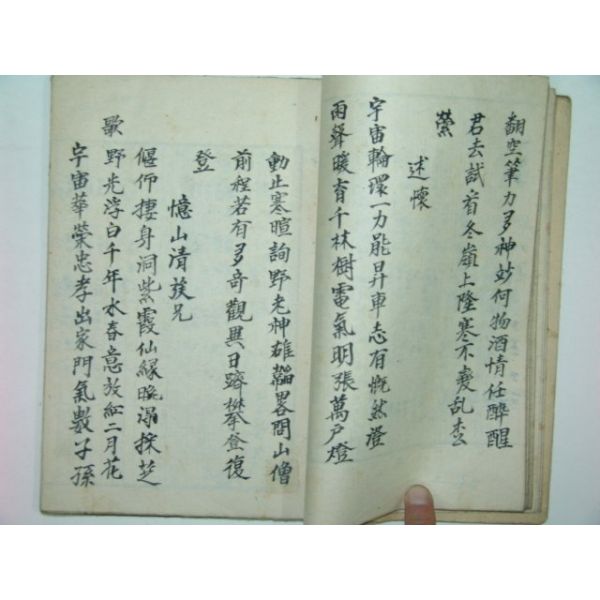 翻空筆力多神妙何物酒情任醉醒
君去試看冬嶺上隆寒不变乱松
縈
述懷
宇宙輪環一力能昇車志有慨然澄
雨聲暖育千林樹電氣明張萬戶燈
動止寒暄詢野老神雄韜畧問山僧
前程若有多奇觀異日躋攀登復
登
憶山清族兄
偃仰捿身洞紫霞仙緣晚溺採芝
歌野先浮白千年水春意放紅二月花
宇宙華榮忠孝出家門氣數子孫